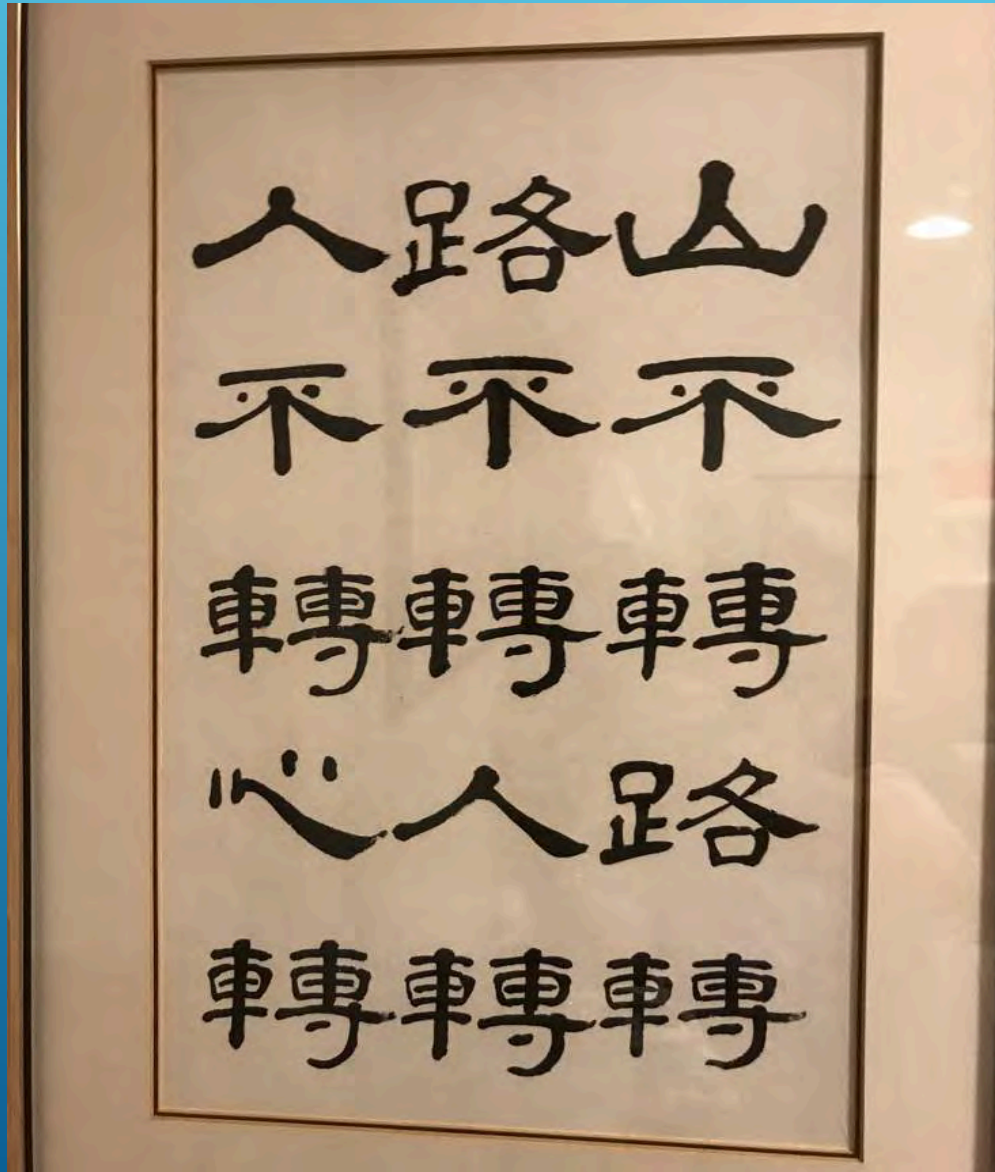 山不轉路轉
路不轉人轉
人不轉心轉